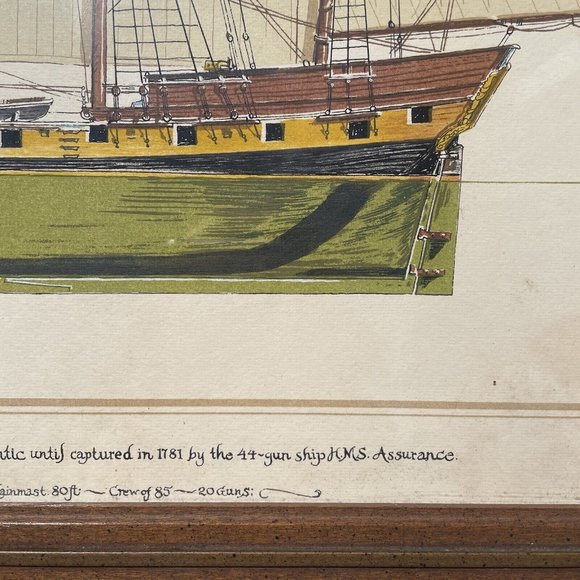 until captured in 1781 by the 44-gun ship H.M.S. Assurance.
80ft — Crew of 85 — 20 Guns: